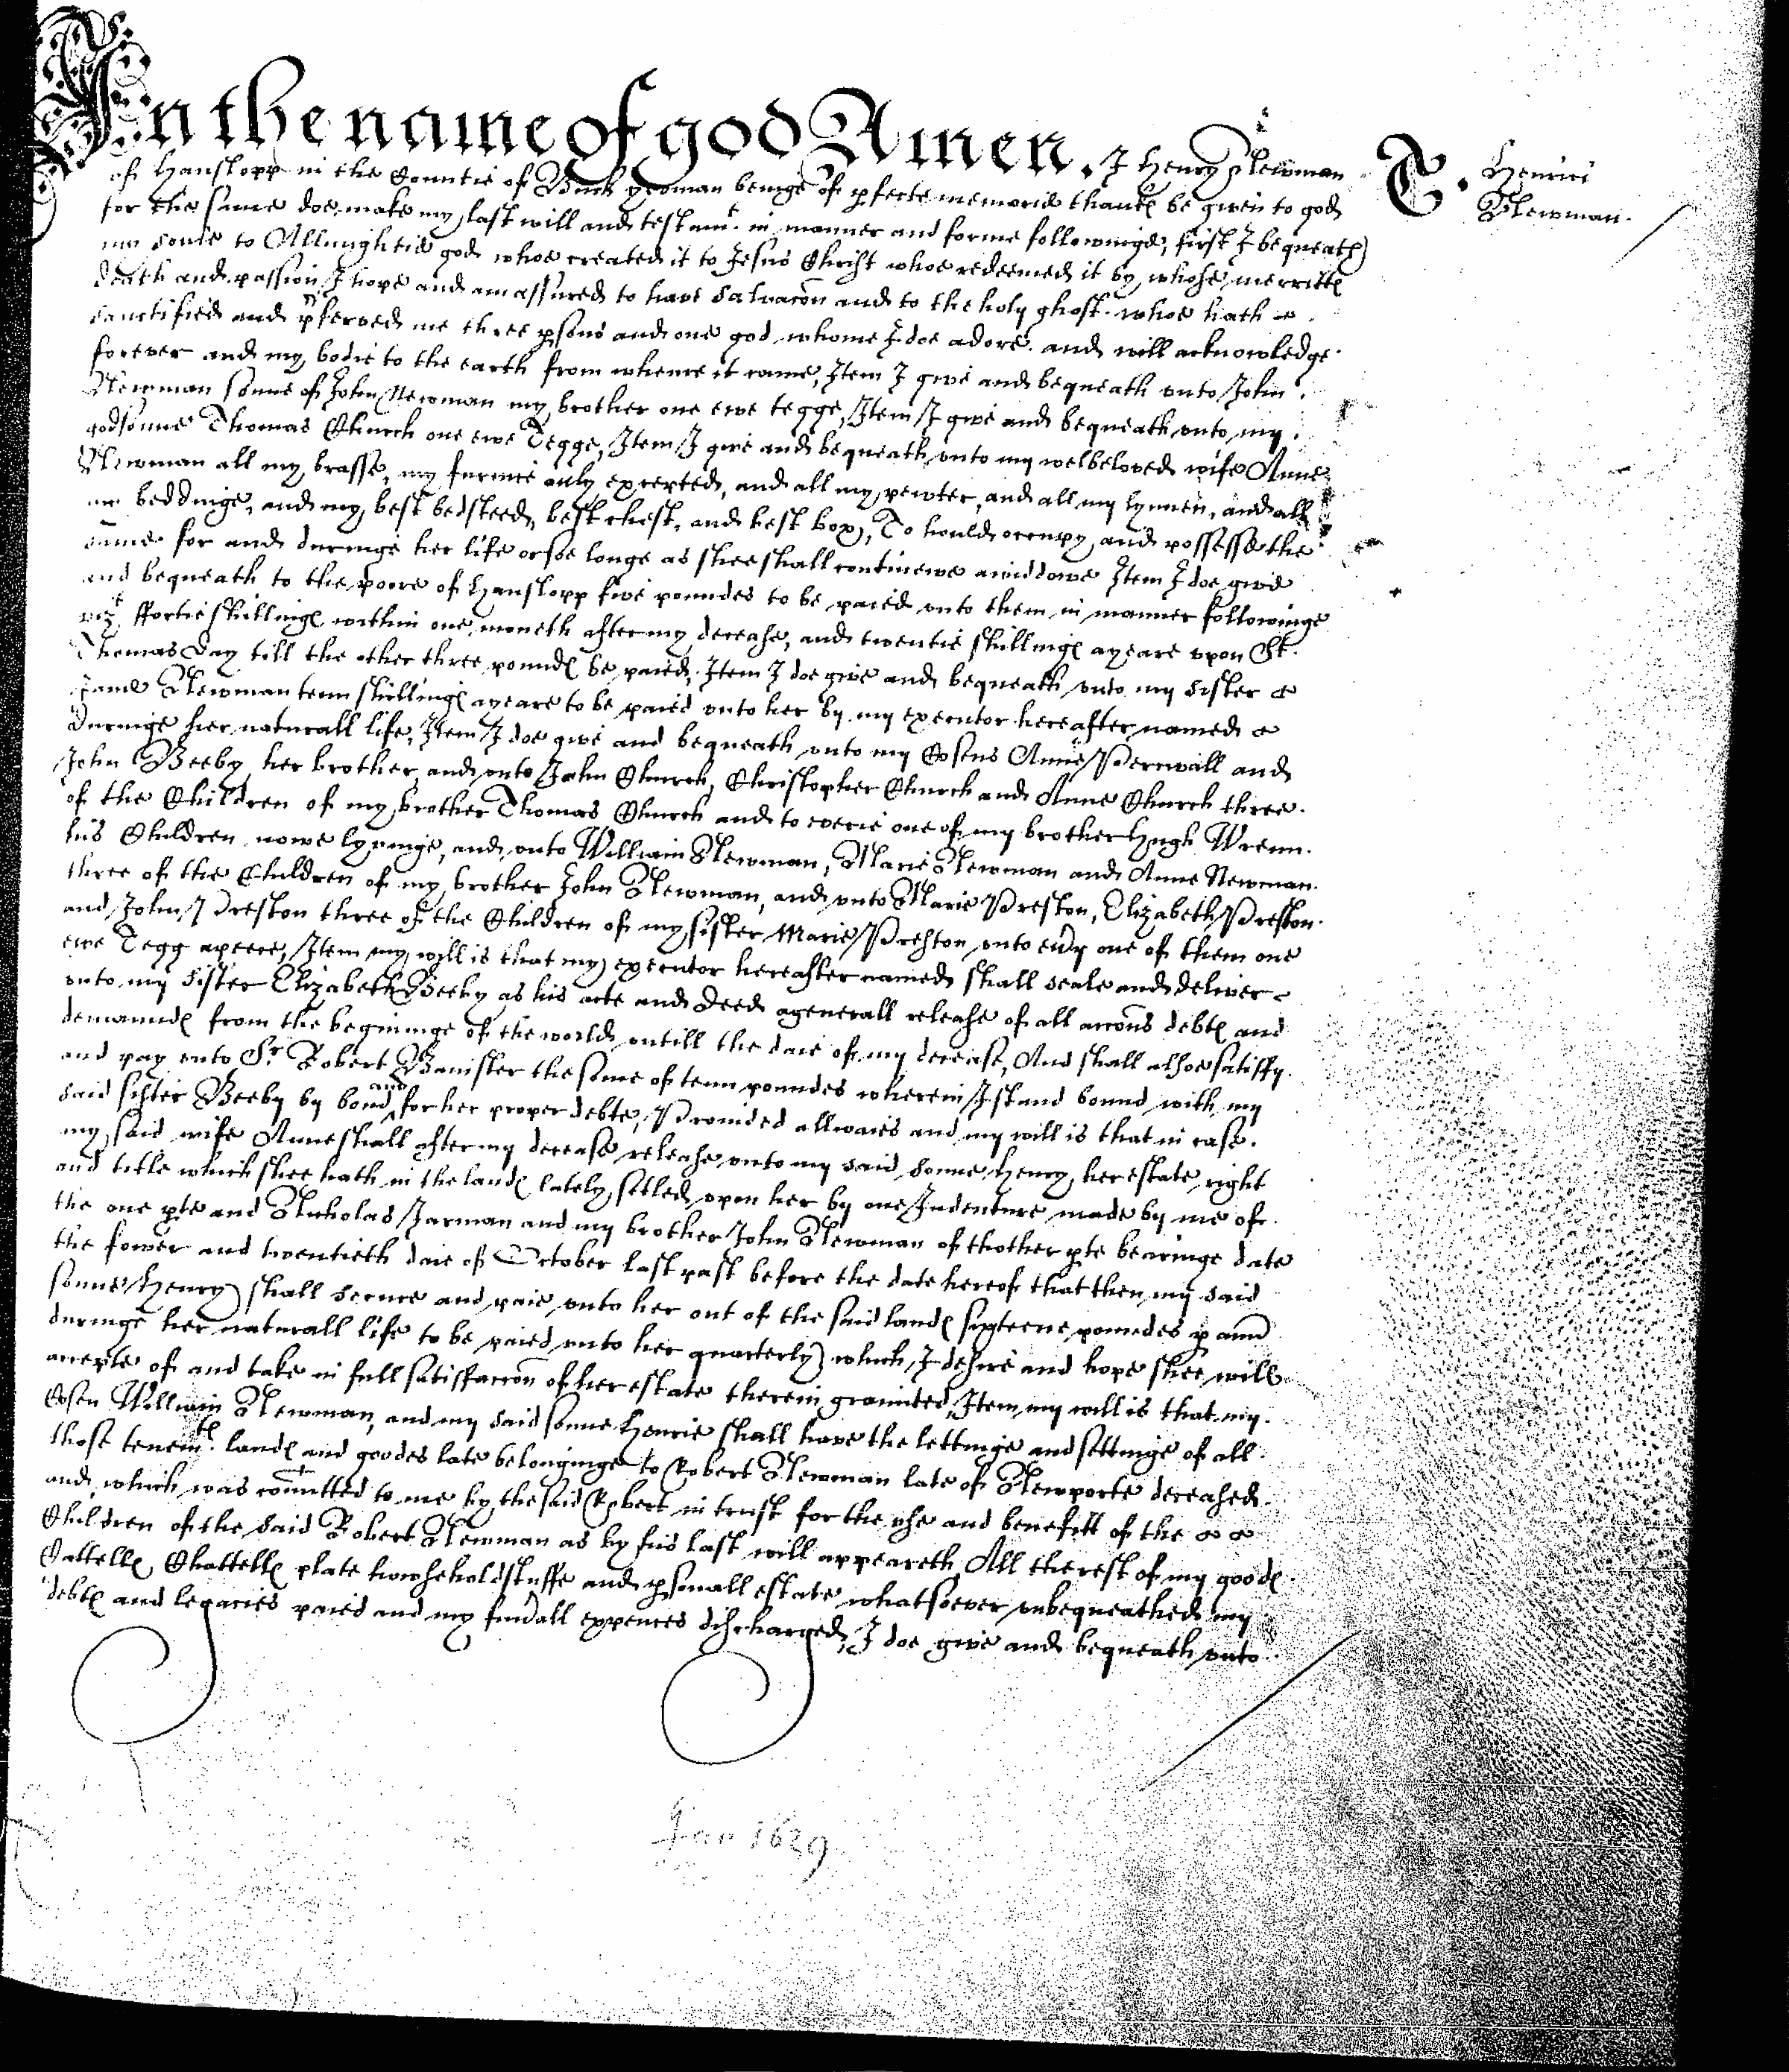 In the name of god Amen. I Henry Newman
T. Henrici
Newman.
of Hanslopp in the Countie of Buck yeoman beinge of pfecte memorie thankℓ be given to god
for the same doe make my last will and testamt. in manner and forme followinge, first I bequeath
my soule to Allmightie god whoe created it to Jesus Christ whoe redeemed it by whose merrittℓ
death and passion I hope and am assured to have salvacon and to the holy ghost whoe hath
sanctified and pserved me three psons and one god whome I doe adore and will acknowledge
forever and my bodie to the earth from whence it came, Item I give and bequeath vnto John
Newman sonne of John Newman my brother one ewe tegge, Item I give and bequeath vnto my
godsonne Thomas Church one ewe Tegge, Item I give and bequeath vnto my welbeloved wife Anne
Newman all my brasse, my furnice only excepted, and all my pewter, and all my lynnen, and all
my beddinge, and my best bedsteed, best chest, and best box, To hould occupy and possesse the
same for and duringe her life or soe longe as shee shall continewe a widdowe Item I doe give
and bequeath to the poore of Hanslopp five poundes to be paied vnto them in manner followinge
vizt. ffortie shillingℓ within one moneth after my decease, and twentie shillingℓ a yeare vpon St.
Thomas Day till the other three poundℓ be paied, Item I doe give and bequeath vnto my sister
Jane Newman tenn shillingℓ a yeare to be paied vnto her by my executor hereafter named
duringe her naturall life, Item I doe give and bequeath vnto my Cosens Anne Pernvall and
John Beeby her brother and vnto John Church, Christopher Church and Anne Church three
of the Children of my brother Thomas Church and to everie one of my brother Hugh Wrenn
his Children nowe lyvinge, and vnto William Newman, Marie Newman and Anne Newman
three of the Children of my brother John Newman, and vnto Marie Preston, Elizabeth Preston
and John Preston three of the Children of my sister Marie Preston vnto evy one of them one
ewe Tegg apeece, Item my will is that my executor hereafter named shall seale and deliver
vnto my sister Elizabeth Beeby as his acte and Deed a generall release of all accons debtℓ and
demaundℓ from the begininge of the world vntill the daie of my decease, And shall alsoe satisfy
and pay vnto Sr Robert Banister the some of tenn poundes wherein I stand bound with my
said sister Beeby by bond and for her proper debte, Provided allwaies and my will is that in case
my said wife Anne shall after my decease release vnto my said sonne Henry, her estate right
and title which shee hath in the landℓ lately setled vpon her by one Indenture made by me of
the one pte and Nicholas Jarman and my brother John Newman of thother pte bearinge date
the fower and twentieth daie of October last past before the date hereof that then my said
sonne Henry shall secure and paie vnto her out of the said landℓ sixteene poundes p ann
duringe her naturall life to be paied vnto her quarterly which I desire and hope shee will
accepte of and take in full satisfaccon of her estate therein graunted, Item my will is that my
Cosen William Newman, and my said sonne Henrie shall have the lettinge and settinge of all
those tenemtℓ. landℓ and goodes late belonginge to Robert Newman late of Newporte deceased
and which was comitted to me by the said Robert in trust for the vse and benefitt of the
Children of the said Robert Newman as by his last will appeareth, All the rest of my goodℓ
Cattellℓ Chattellℓ plate howsholdstuffe and psonall estate whatsoever vnbequeathed my
debtℓ and legacies paied and my funerall expences discharged, I doe give and bequeath vnto
Jan 1629